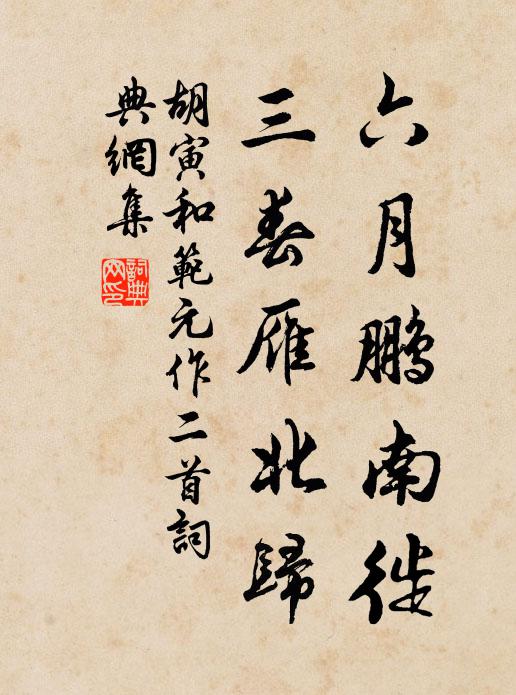 六月鵬南徙
三春雁北歸
胡寅和範元作二首詞
典網集
詞典網印